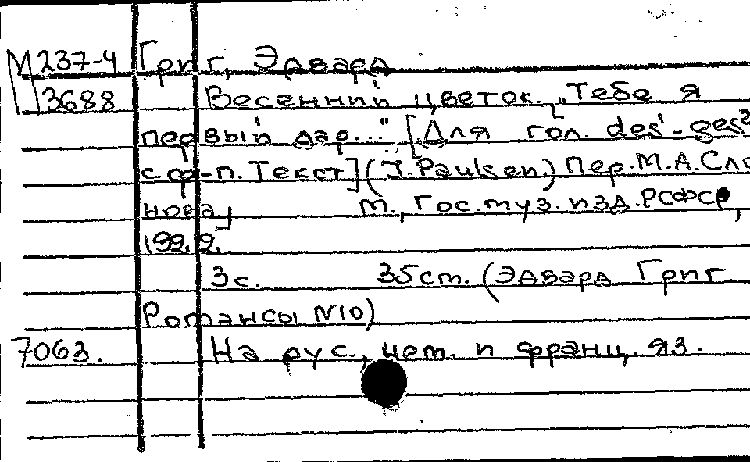 М237-4 Григ, Эдвард
3688 Весенний цветок. „Тебе я
первый дар..." [Для гол. des'-ges²
с ф-п. Текст] (J. Paulsen) Пер. М.А. Сло
нова,] М., Гос. муз. изд. РСФСР,
3 с. 35 ст. (Эдвард Григ
Романсы N10)
7063. На рус., нем. и франц. яз.